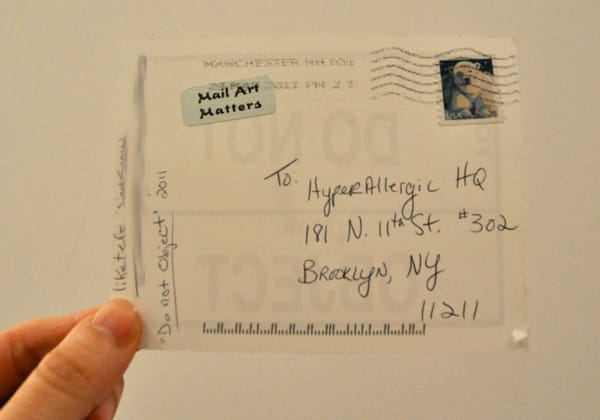 MANCHESTER NH 031
Mail Art
Matters
USA 28
To:
HyperAllergic HQ
181 N. 11th St. #302
Brooklyn, NY
11211
"Do not Object" 2011
DO NOT
OBJECT